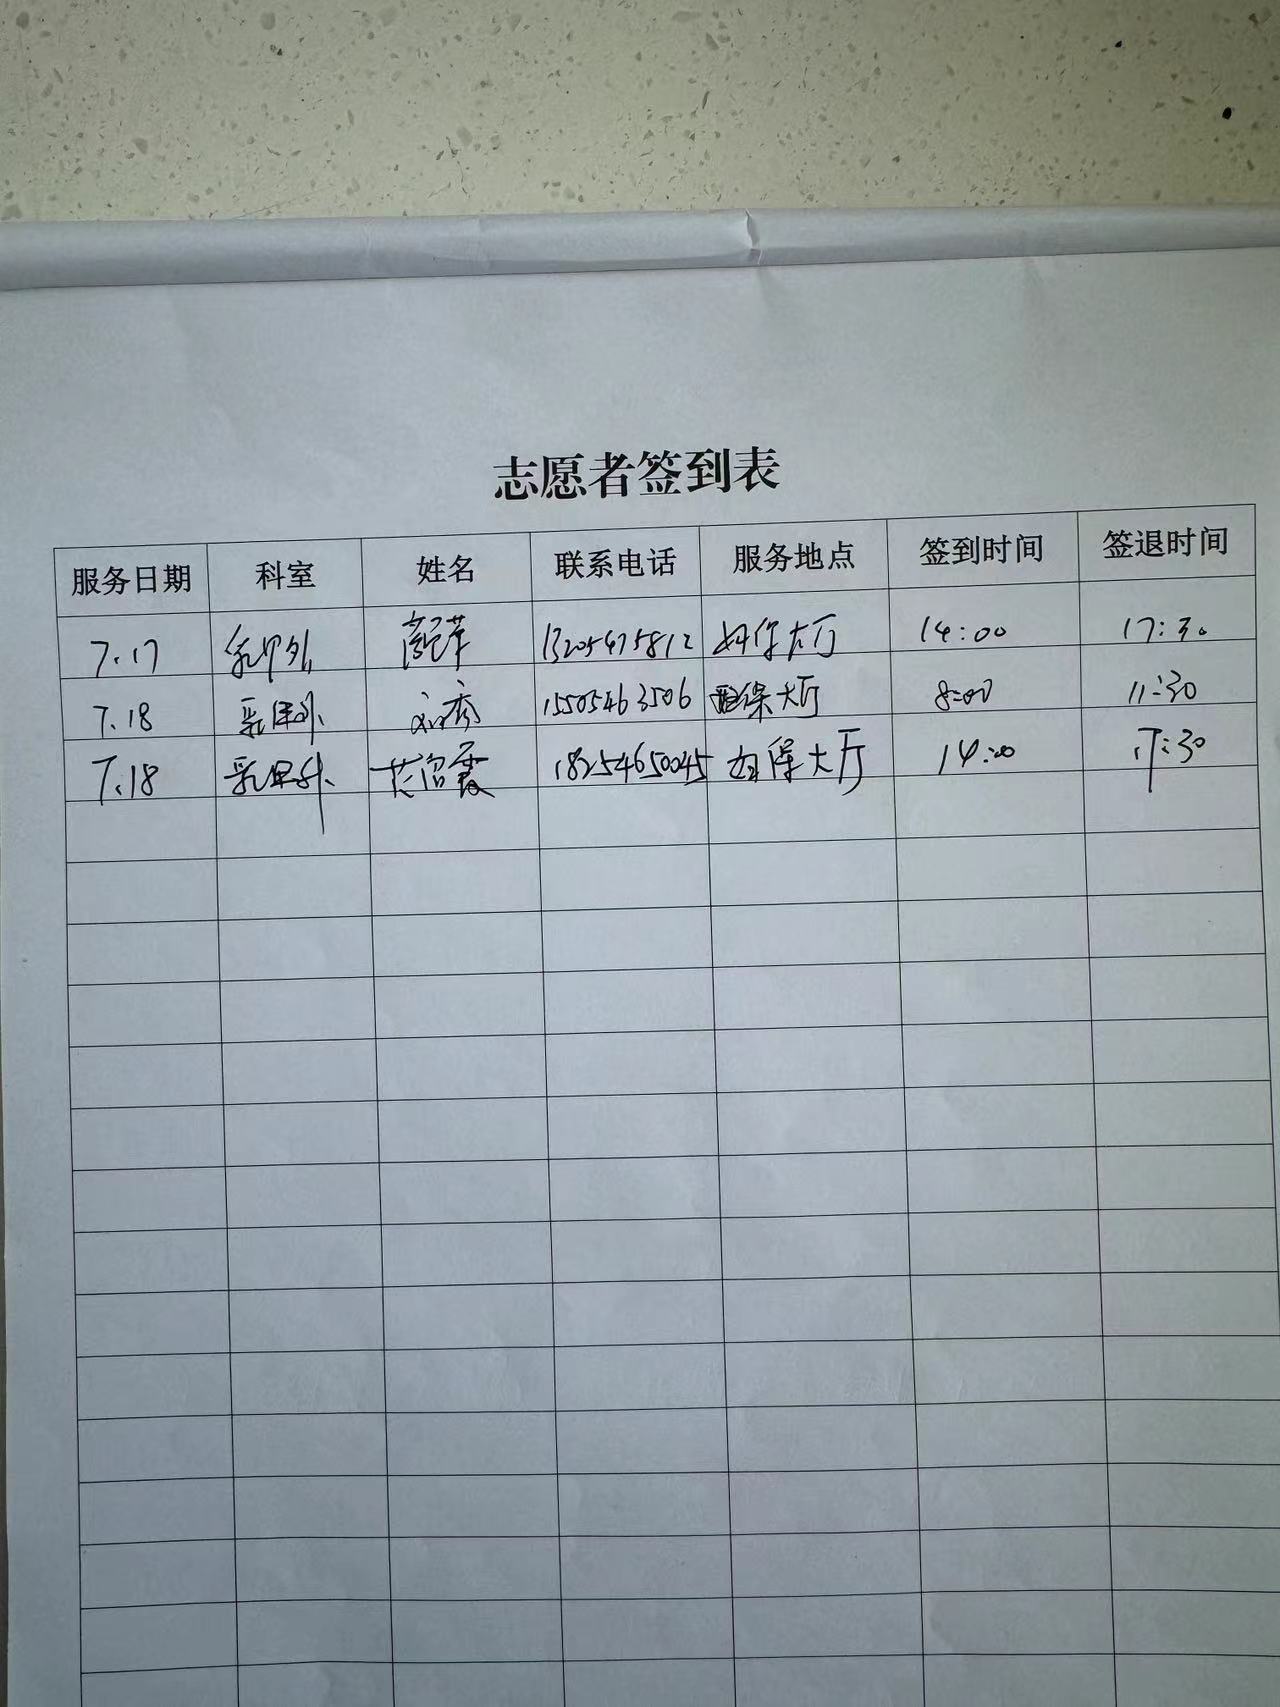 志愿者签到表
服务日期 科室 姓名 联系电话 服务地点 签到时间 签退时间
7.17 乳甲外 13205475812 妇保大厅 14:00 17:30
7.18 乳甲外 15505463506 保大厅 8:00 11:30
7.18 乳甲外 18254650045 妇保大厅 14:00 17:30